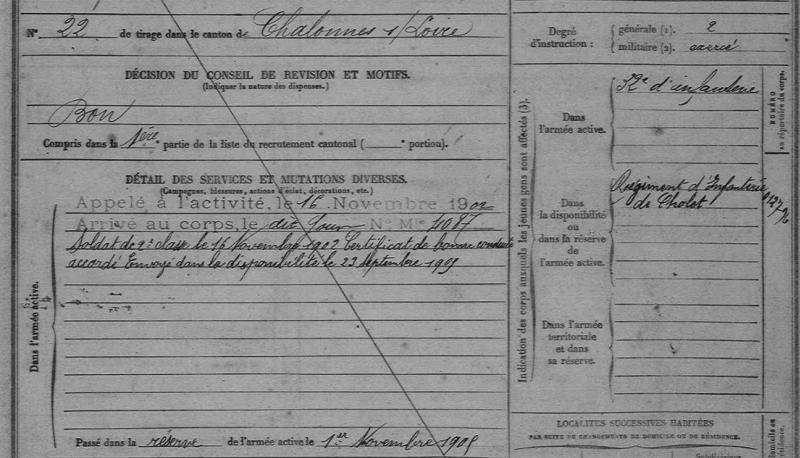 N° 22 de tirage dans le canton de Chalonnes s/Loire
DÉCISION DU CONSEIL DE REVISION ET MOTIFS.
(Indiquer la nature des dispenses.)
Bon
Compris dans la 1ère partie de la liste du recrutement cantonal ( ° portion).
DÉTAIL DES SERVICES ET MUTATIONS DIVERSES.
(Campagnes, blessures, actions d'éclat, décorations, etc.)
Appelé à l'activité, le 16 Novembre 1902
Arrivé au corps, le dit jour N° Mle 4087
Soldat de 2e classe le 16 Novembre 1902 Certificat de bonne conduite
accordé Envoyé dans la disponibilité le 23 Septembre 1905
Dans l'armée active.
Passé dans la réserve de l'armée active le 1er Novembre 1905
Degré
d'instruction :
générale (1). 2
militaire (2). exercé
Indication des corps auxquels les jeunes gens sont affectés (3).
Dans
l'armée active.
d'infanterie
Dans
la disponibilité
ou
dans la réserve
de
l'armée active.
Régiment d'Infanterie
de Cholet
Dans l'armée
territoriale
et dans
sa réserve.
NUMÉRO
au répertoire du corps.
LOCALITÉS SUCCESSIVES HABITÉES
PAR SUITE DE CHANGEMENTS DE DOMICILE OU DE RÉSIDENCE.
Subdivisions